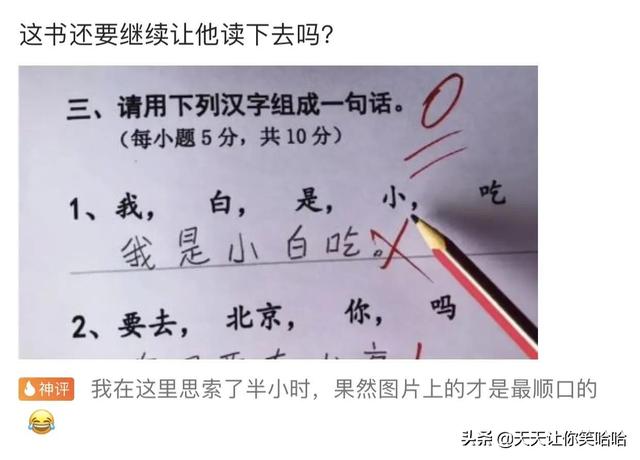 这书还要继续让他读下去吗?
三、请用下列汉字组成一句话。
(每小题5分，共10分)
0
1、我， 白， 是， 小， 吃
我是小白吃。
2、要去， 北京， 你， 吗
神评 我在这里思索了半小时，果然图片上的才是最顺口的
头条 @天天让你笑哈哈